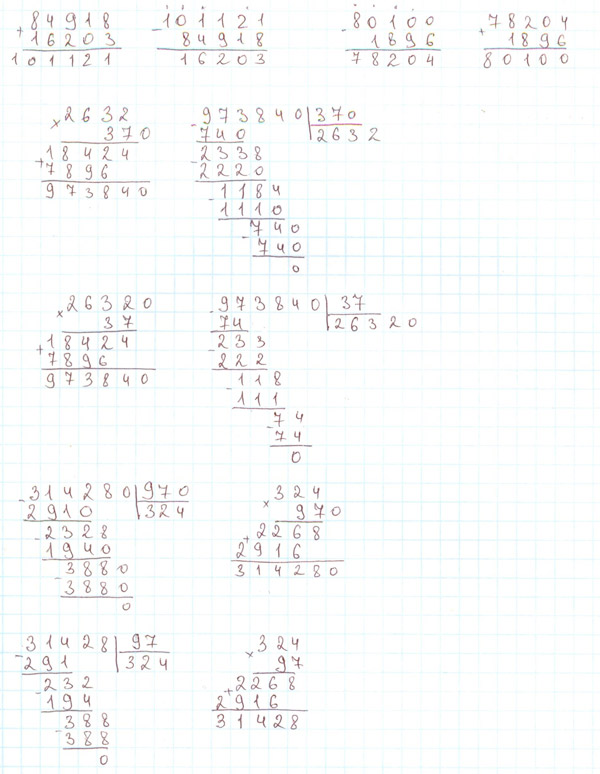 84918
+
16203
101121
101121
-
84918
16203
80100
-
1896
78204
78204
+
1896
80100
2632
×
370
18424
+
7896
973840
- 973840 | 370
740 2632
- 2338
2220
- 1184
1110
- 740
740
0
26320
×
37
18424
+
7896
973840
- 973840 | 37
74 26320
- 233
222
- 118
111
- 74
74
0
- 314280 | 970
2910 324
- 2328
1940
- 3880
3880
0
324
×
970
2268
+
2916
314280
- 31428 | 97
291 324
- 232
194
- 388
388
0
324
×
97
2268
+
2916
31428